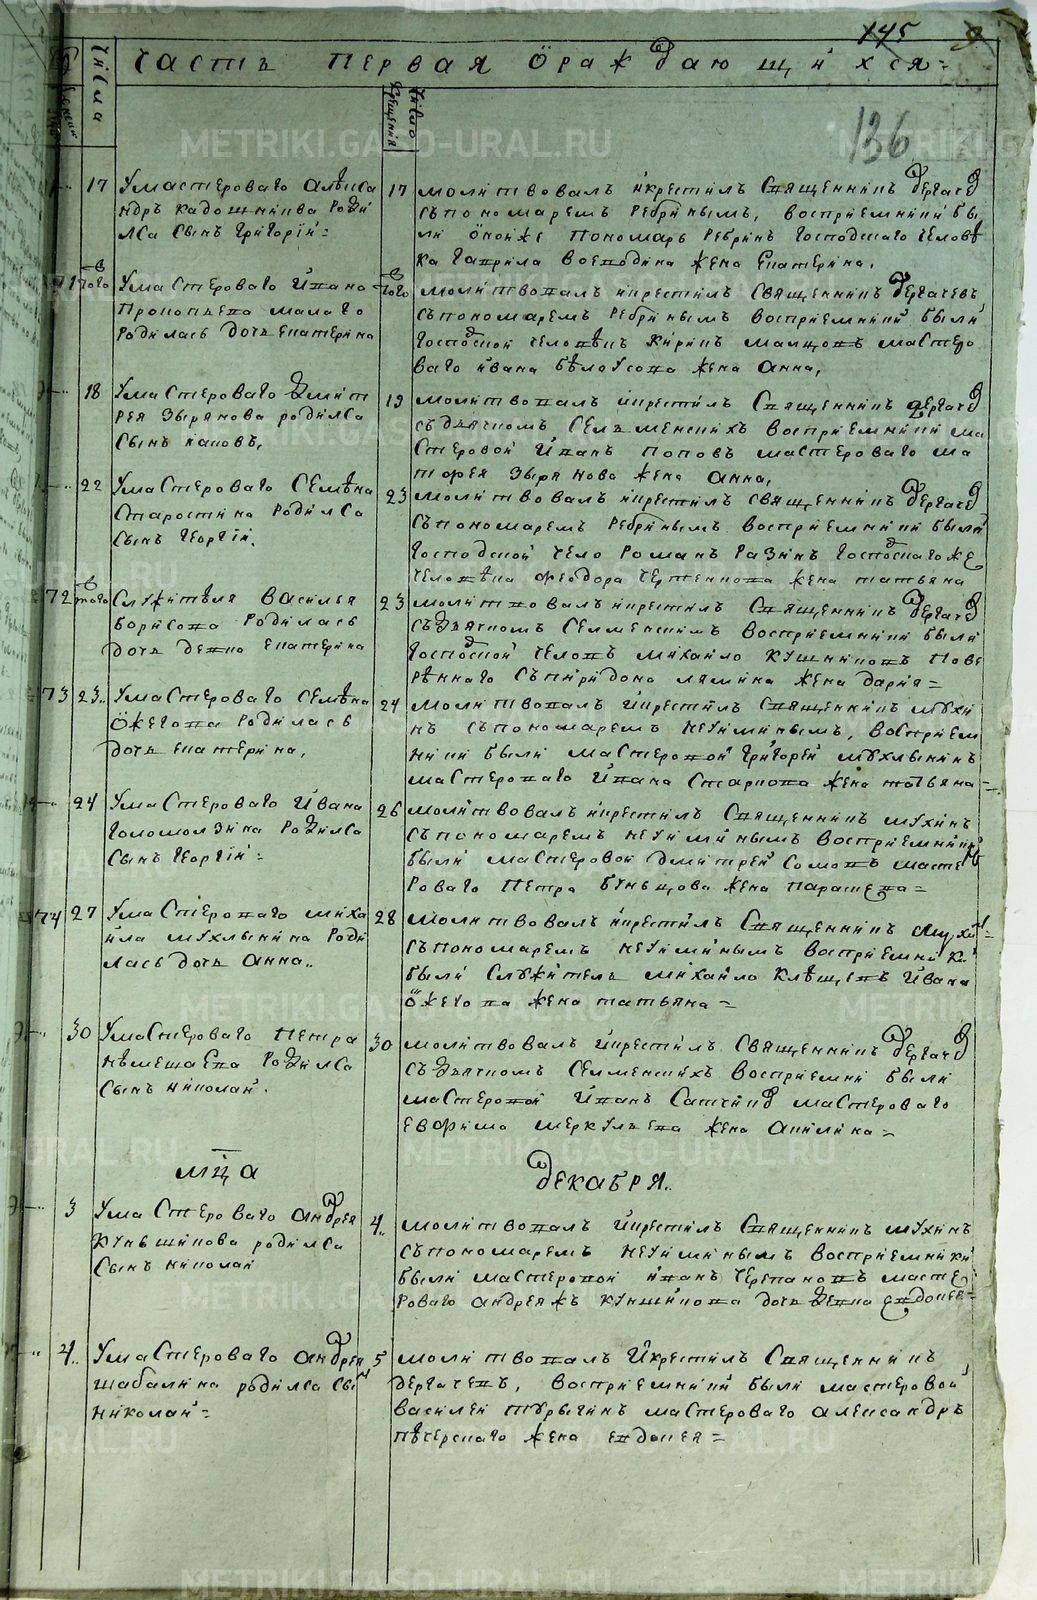 145
136
Часть первая ö раждающихся =
Числа
Число крещенiя
17 У мастероваго Алѣкса
ндръ Кадошниква роди
лса сынъ Григорiй =
17 молитвовалъ и крестилъ Священникъ Дергачев
съ пономаремъ Ребринымъ, восприемники бы
ли öной же пономарь Ребринъ господскаго человѣ
ка Гаврила Воеводина жена Екатерина,
того У мастероваго Ивана
Прокопьева малаго
родилась дочь Екатерина
того молитвовалъ и крестилъ священникъ Дергачевъ
съ пономаремъ Ребринымъ восприемники были
господской человѣкъ Кирикъ Малцовъ мастеро
ваго ивана Бѣлоусова жена Анна,
18 У мастероваго Дмит
рея Зырянова родилса
сынъ иаковъ,
19 молитвовалъ и крестилъ Священникъ Дергачев
съ дьячкомъ Селменскихъ восприемники ма
стеровой Иванъ Поповъ мастероваго Ма
тфея Зырянова жена Анна,
22 У мастероваго Семѣна
Старостина родилса
сынъ Георгiй.
23 молитвовалъ и крестилъ священникъ Дергачев
съ пономаремъ Ребринымъ восприемники были
господской чело Романъ Разинъ господскаго же
человѣка Феодора Чертенкова жена татьяна
72 того Служитѣля Василья
Борисова родилась
дочь девка Екатерина
23 молитвовалъ и крестилъ Священникъ Дергачев
съ дьячкомъ Селменскимъ восприемники были
господской человъ Михайло Кушниковъ пове
рѣннаго Спиридона Лямина жена Дария =
73 23.. У мастероваго Семѣна
Ожегова родилась
дочь екатерина,
24 молитвовалъ и крестилъ священникъ Мухи
нъ съ пономаремъ Неуйминымъ, восприем
ники были мастеровой Григорей Мухлынинъ
мастероваго Ивана Старкова жена татьяна =
24 У мастероваго Ивана
Голомолзина родилса
сынъ Георгiй =
26 молитвовалъ и крестилъ Священникъ Мухинъ
съ пономаремъ Неуйминымъ восприемники
были мастеровой Дмитрей Сомовъ масте
роваго Петра Буньщова жена Парасцева =
74 27 У мастероваго Миха
йла Мухлынина роди
лась дочь Анна..
28 молитвовалъ и крестилъ Священникъ Мухинъ =
съ пономаремъ Неуйминымъ восприемники
были Служитель Михайло Клѣщевъ Ивана
Ожегова жена татьяна =
30 У мастероваго Петра
Нѣмешаева родилса
сынъ николай.
30 молитвовалъ и крестилъ священникъ Дергачев
съ дьячкомъ Селменскихъ восприемни были
мастеровой Иванъ мастероваго
Евфима Меркульева жена Акилина =
мца Декабря..
3 У мастероваго Андрея
Куньшикова родилса
сынъ николай
4.. молитвовалъ и крестилъ Священникъ Мухинъ
съ пономаремъ Неуйминымъ восприемники
были мастеровой иванъ Черепановъ масте
роваго Андреяжъ Куншикова дочь девка Евдокея =
4.. У мастероваго Андрея
Шабалина родилса сы
николай =
5 молитвовалъ и крестилъ Священникъ
Дергачевъ, восприемники были мастеровой
Василей Турыгинъ мастероваго Александръ
Пѣчерскаго жена евдокея =